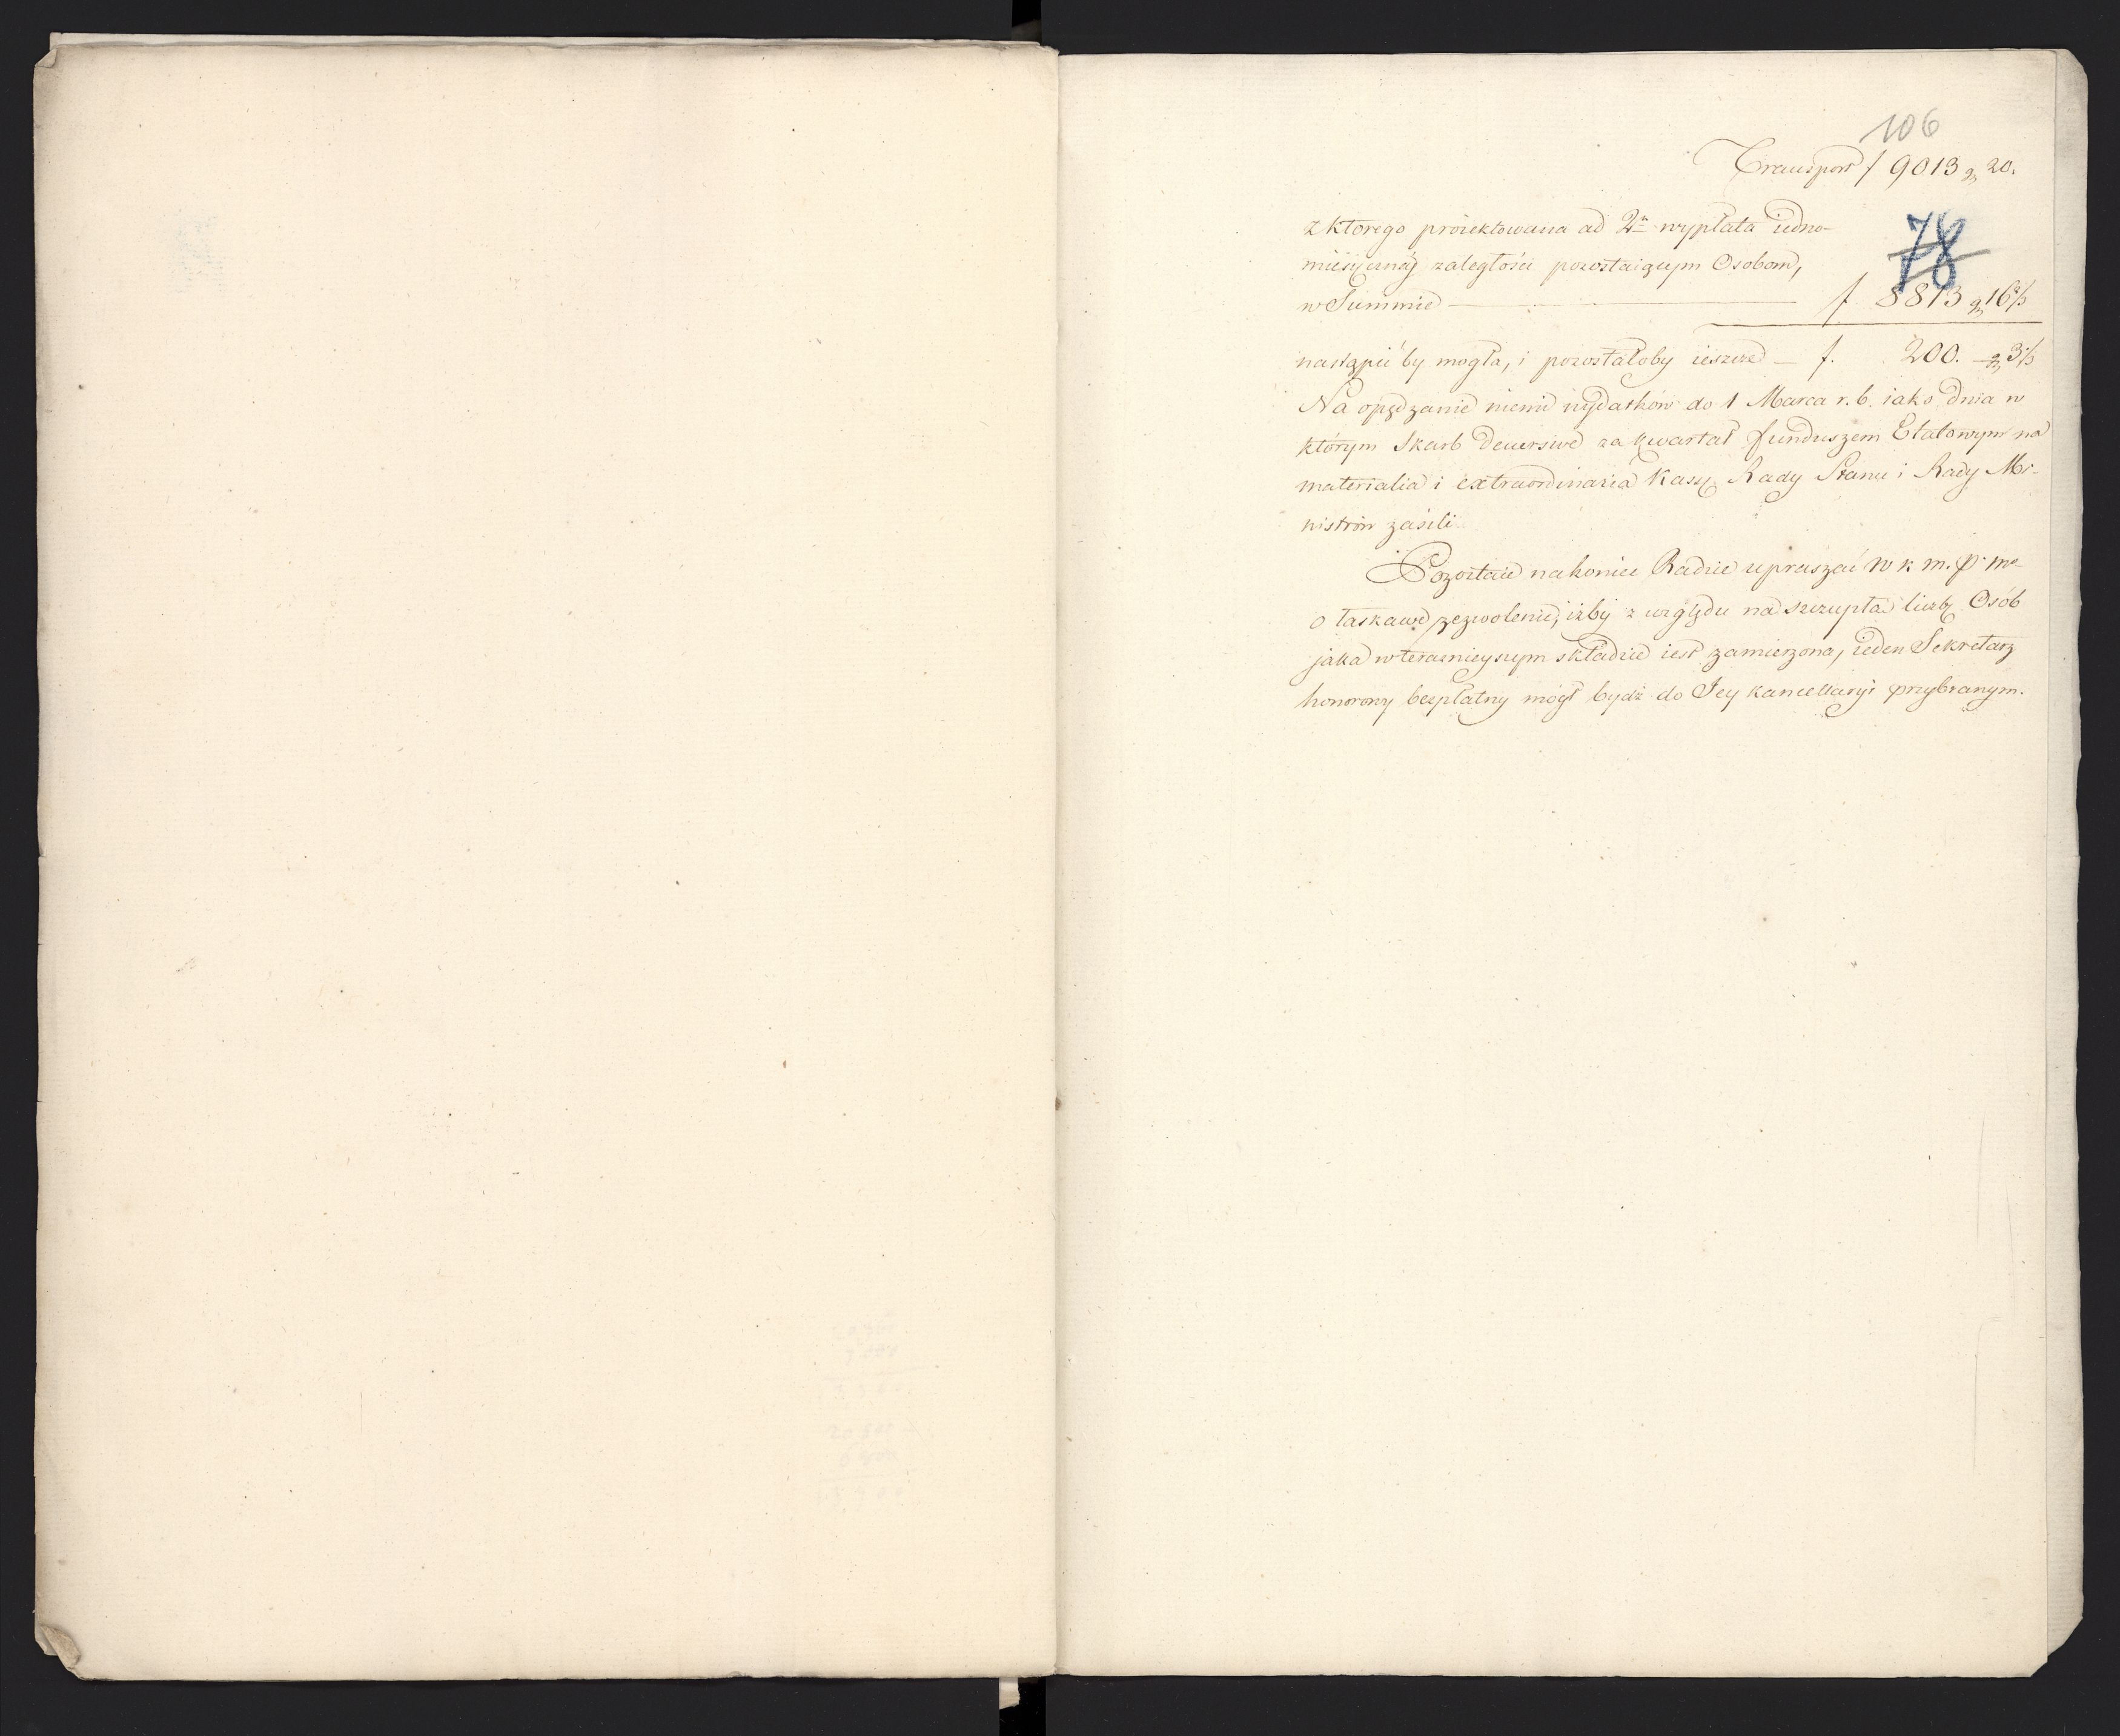 106
Transport f 9013 g 20.
z ktorego proiektowana ad 2 wypłata iedno-
miesięcznéj zaległości pozostaiącym Osobom,
78
w Summie — f. 8813 g 16⅔
nastąpić by mogła, i pozostałoby ieszcze — f. 200. g 3⅓
Na opędzanie niemi wydatków do 1 Marca r. b. iako dnia w
którym Skarb za kwartał funduszem Etatowym na
materialia i extraordinaria Kassę Rady Stanu i Rady Mi-
nistrów zasili.
Pozostaie nakoniec Radzie upraszać W K M. P.
o łaskawe zezwolenie, iżby z względu na szczupłą liczbę Osób
jaka w teraznieyszym składzie iest zamierzona, ieden Sekretarz
honorowy bezpłatny mógł bydź do Jey kancellaryi przybranym.